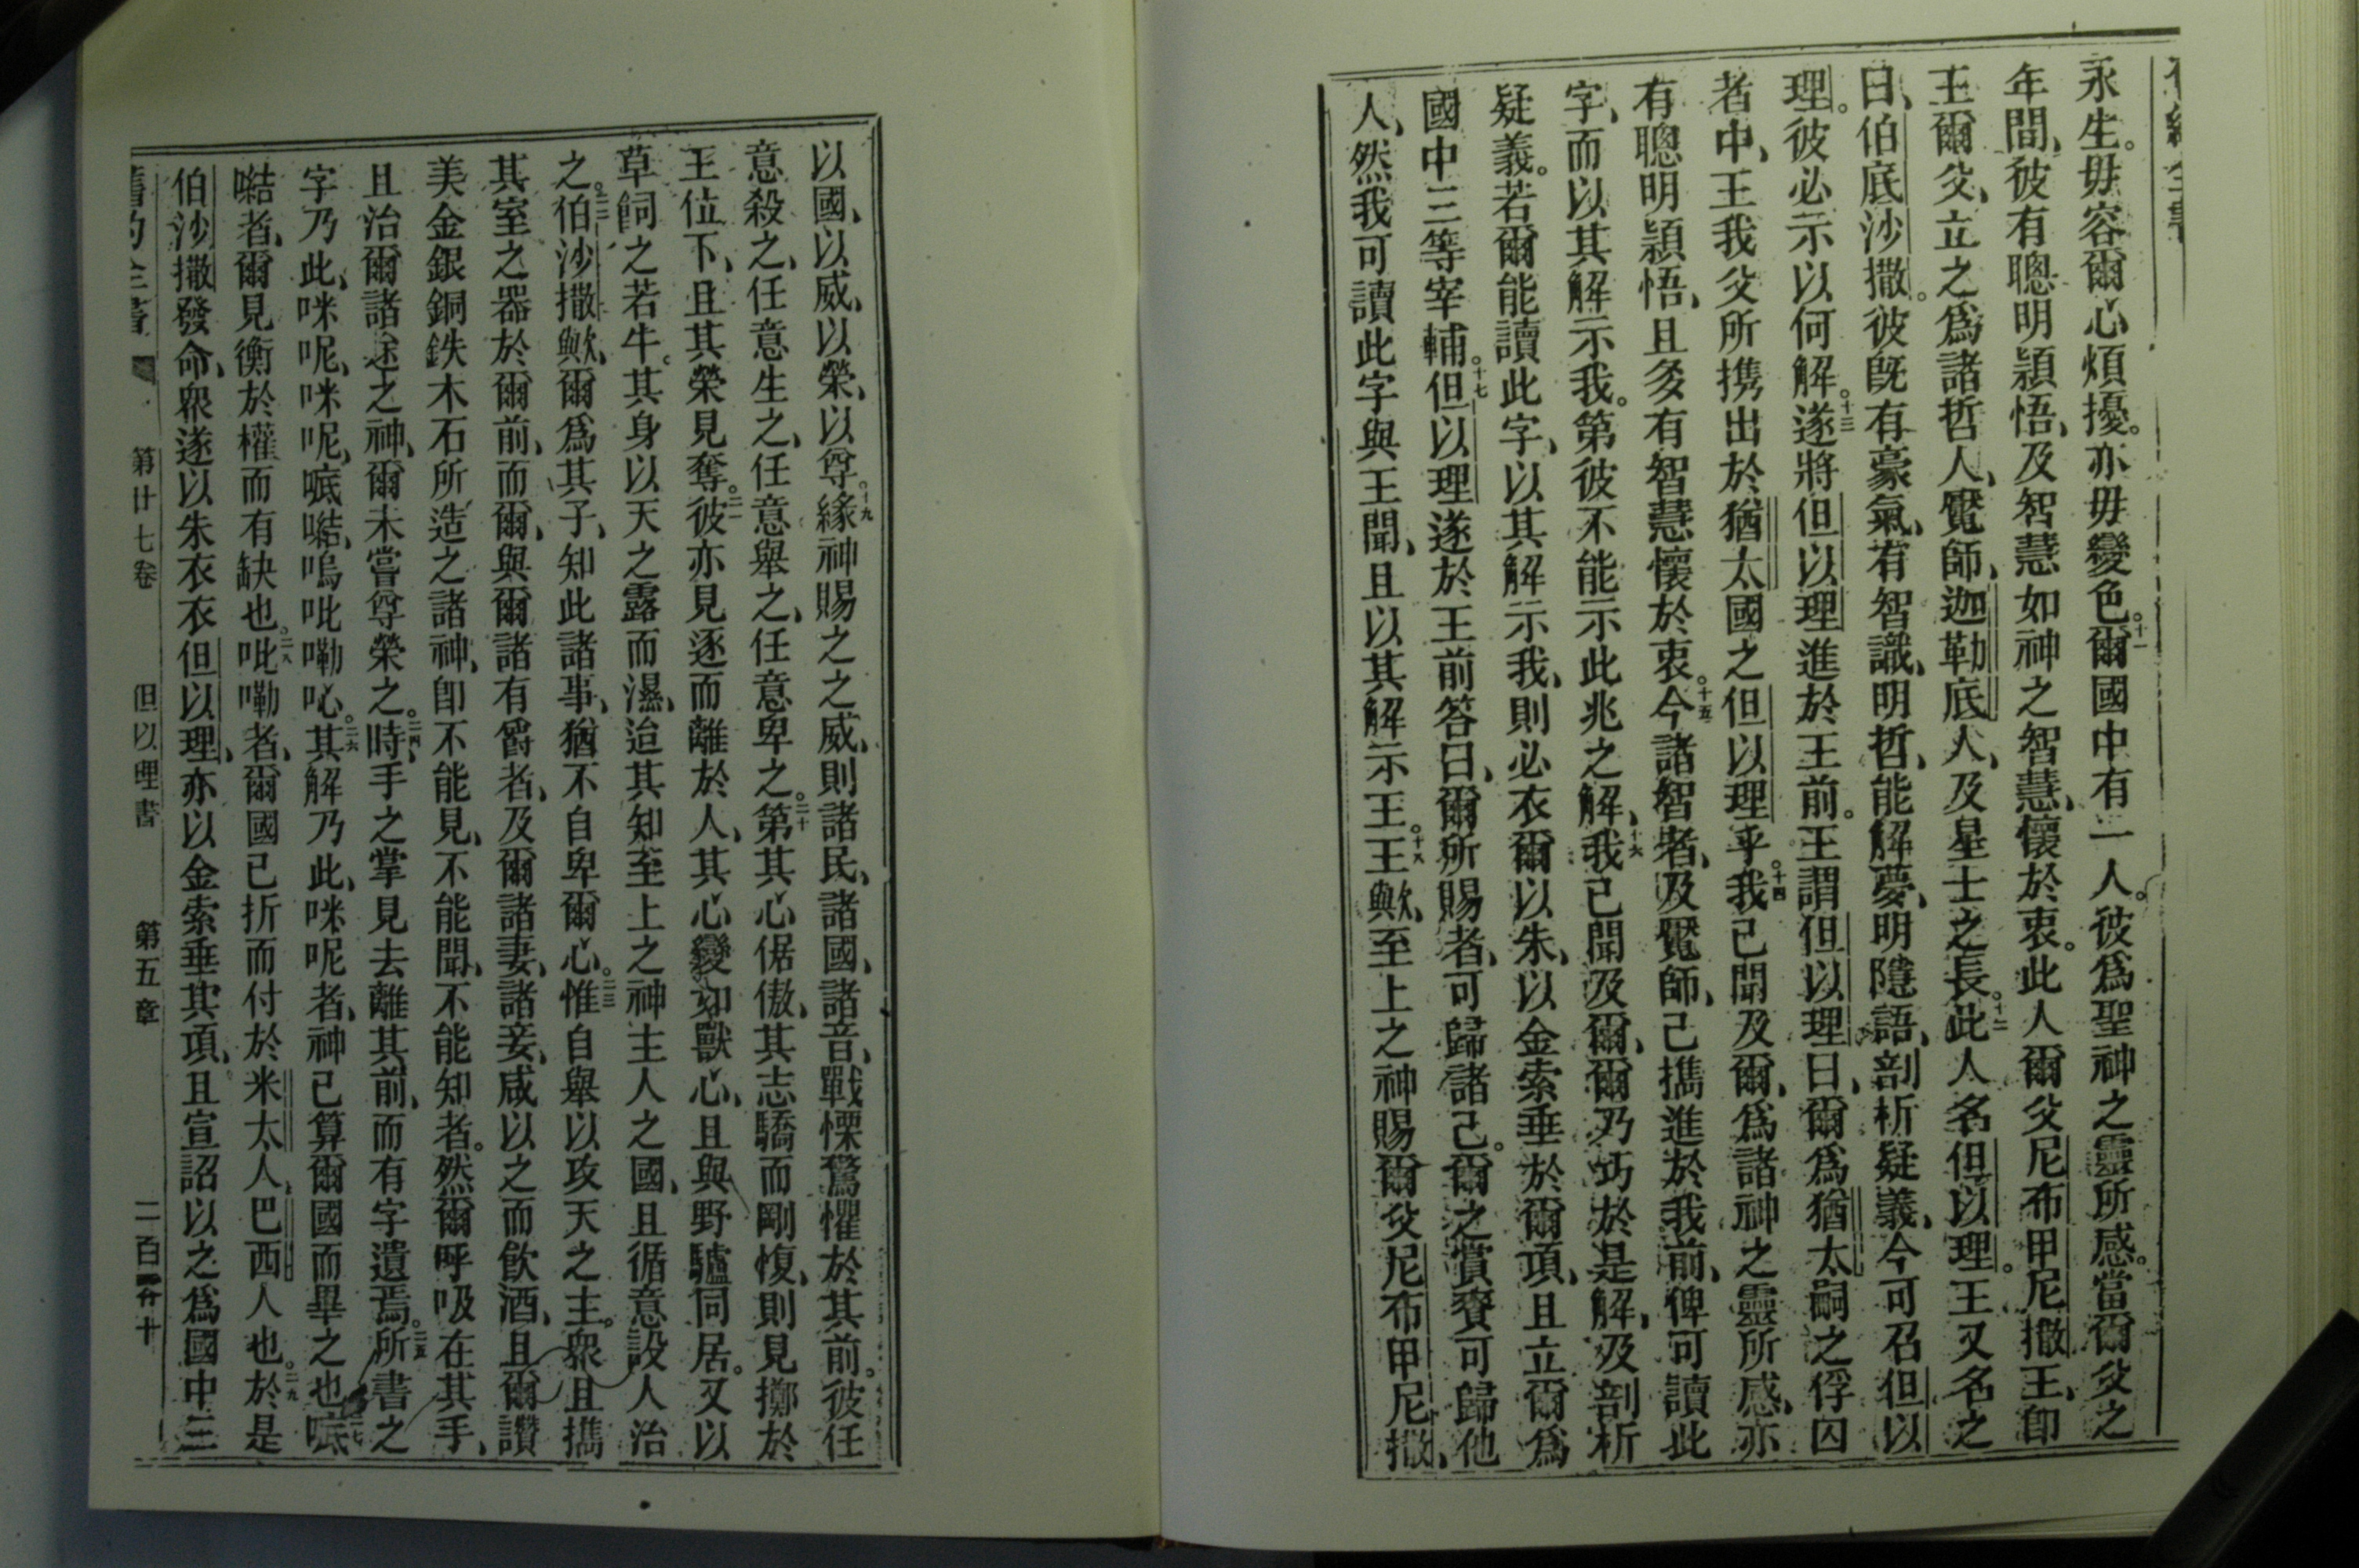 永生。毋容爾心煩擾。亦毋變色。十一爾國中有一人。彼爲聖神之靈所感。當爾父之
年間、彼有聰明頴悟、及智慧如神之智慧、懷於衷。此人爾父尼布甲尼撒王、卽
王爾父、立之爲諸哲人、覡師、迦勒底人、及星士之長。十二此人名但以理。王又名之
曰、伯底沙撒。彼旣有豪氣、有智識、明哲、能解夢、明隱語、剖析疑義、今可召但以
理。彼必示以何解。十三遂將但以理進於王前。王謂但以理曰、爾爲猶太嗣之俘囚
者中、王我父所携出於猶太國之但以理乎。十四我已聞及爾、爲諸神之靈所感、亦
有聰明頴悟、且多有智慧懷於衷。十五今諸智者、及覡師、已携進於我前、俾可讀此
字、而以其解示我。第彼不能示此兆之解、十六我已聞及爾、爾乃巧於是解、及剖析
疑義。若爾能讀此字、以其解示我、則必衣爾以朱、以金索垂於爾項、且立爾爲
國中三等宰輔。十七但以理遂於王前答曰、爾所賜者、可歸諸己。爾之賞賚可歸他
人、然我可讀此字與王聞、且以其解示王。十八王歟、至上之神賜爾父尼布甲尼撒、
以國、以威、以榮、以尊。十九緣神賜之之威、則諸民、諸國、諸音、戰慄驚懼於其前。彼任
意殺之、任意生之、任意舉之、任意卑之。二十第其心倨傲、其志驕而剛愎、則見擲於
王位下、且其榮見奪。二一彼亦見逐而離於人、其心變如獸心、且與野驢同居。又以
草飼之若牛。其身以天之露而濕、迨其知至上之神主人之國、且循意設人治
之。二二伯沙撒歟、爾爲其子、知此諸事、猶不自卑爾心。二三惟自舉以攻天之主。衆且攜
其室之器於爾前、而爾、與爾諸有爵者、及爾諸妻、諸妾、咸以之而飲酒、且爾讚
美金銀銅鉄木石所造之諸神、卽不能見、不能聞、不能知者。然爾呼吸在其手、
且治爾諸途之神、爾未嘗尊榮之。二四時、手之掌見去離其前、而有字遺焉。二五所書之
字乃此、咪呢、咪呢、㖳㗌、嗚吡嘞吣。二六其解乃此、咪呢者、神已算爾國而畢之也。二七㖳
㗌者、爾見衡於權而有缺也。二八吡嘞者、爾國已折而付於米太人、巴西人也。二九於是
伯沙撒發命、衆遂以朱衣衣但以理、亦以金索垂其項、且宣詔以之爲國中三
第廿七卷 但以理書 第五章